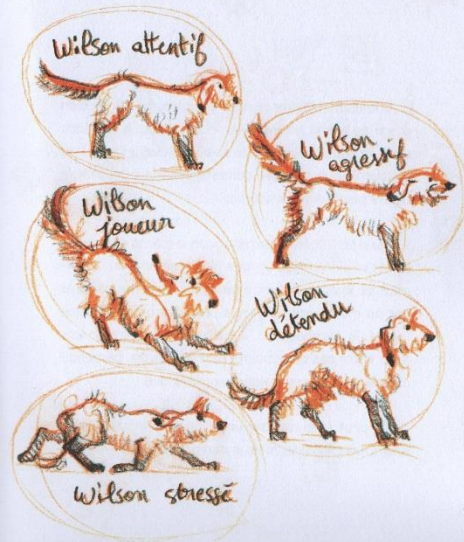 Wilson attentif
Wilson
agressif
Wilson
joueur
Wilson
détendu
Wilson stressé